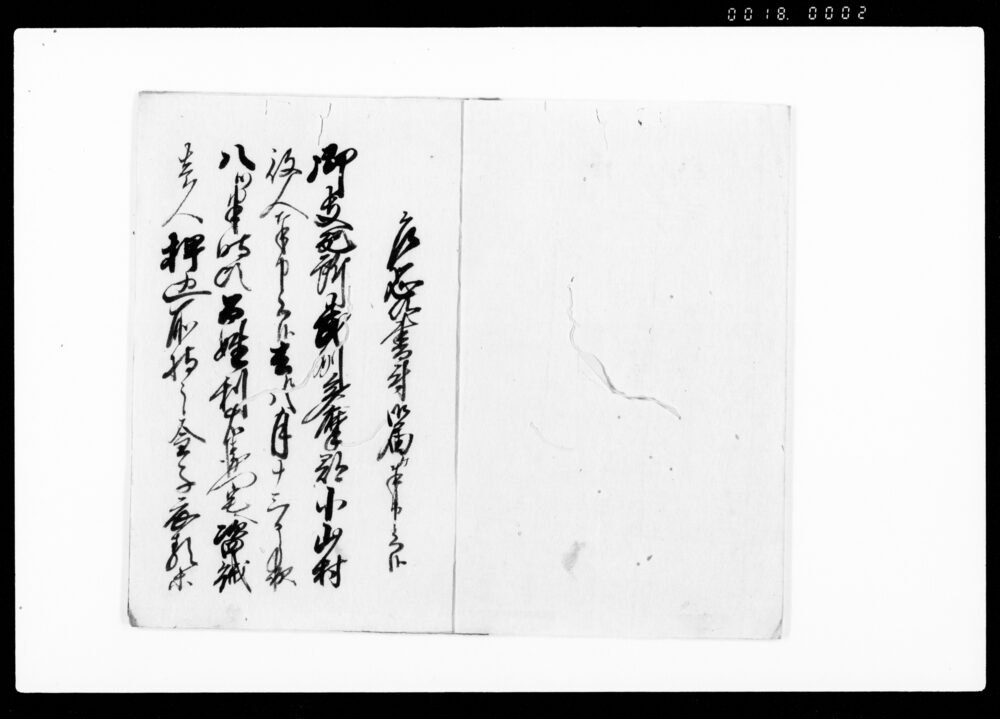 0018. 0002
乍恐以書付御届奉申上候
御支配所武州多摩郡小山村
役人奉申上候去ル八月十三日夜
八ツ半時頃百姓宅盗賊
壱人押込所持之金子衣類等